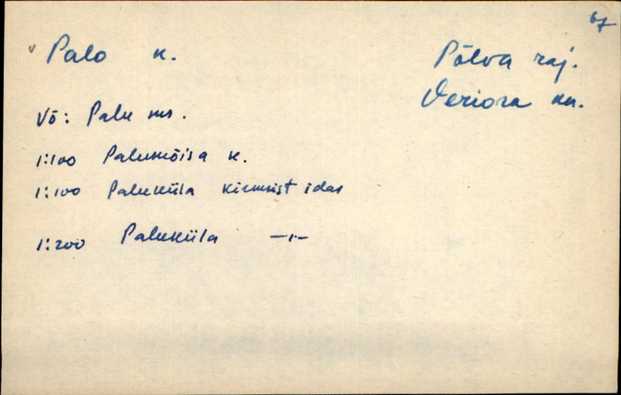 67
Palo k. Põlva raj.
Veriora kn.
Võ: Palu ms.
1:100 Palumõisa k.
1:100 Paluküla idas
1:200 Paluküla —"—